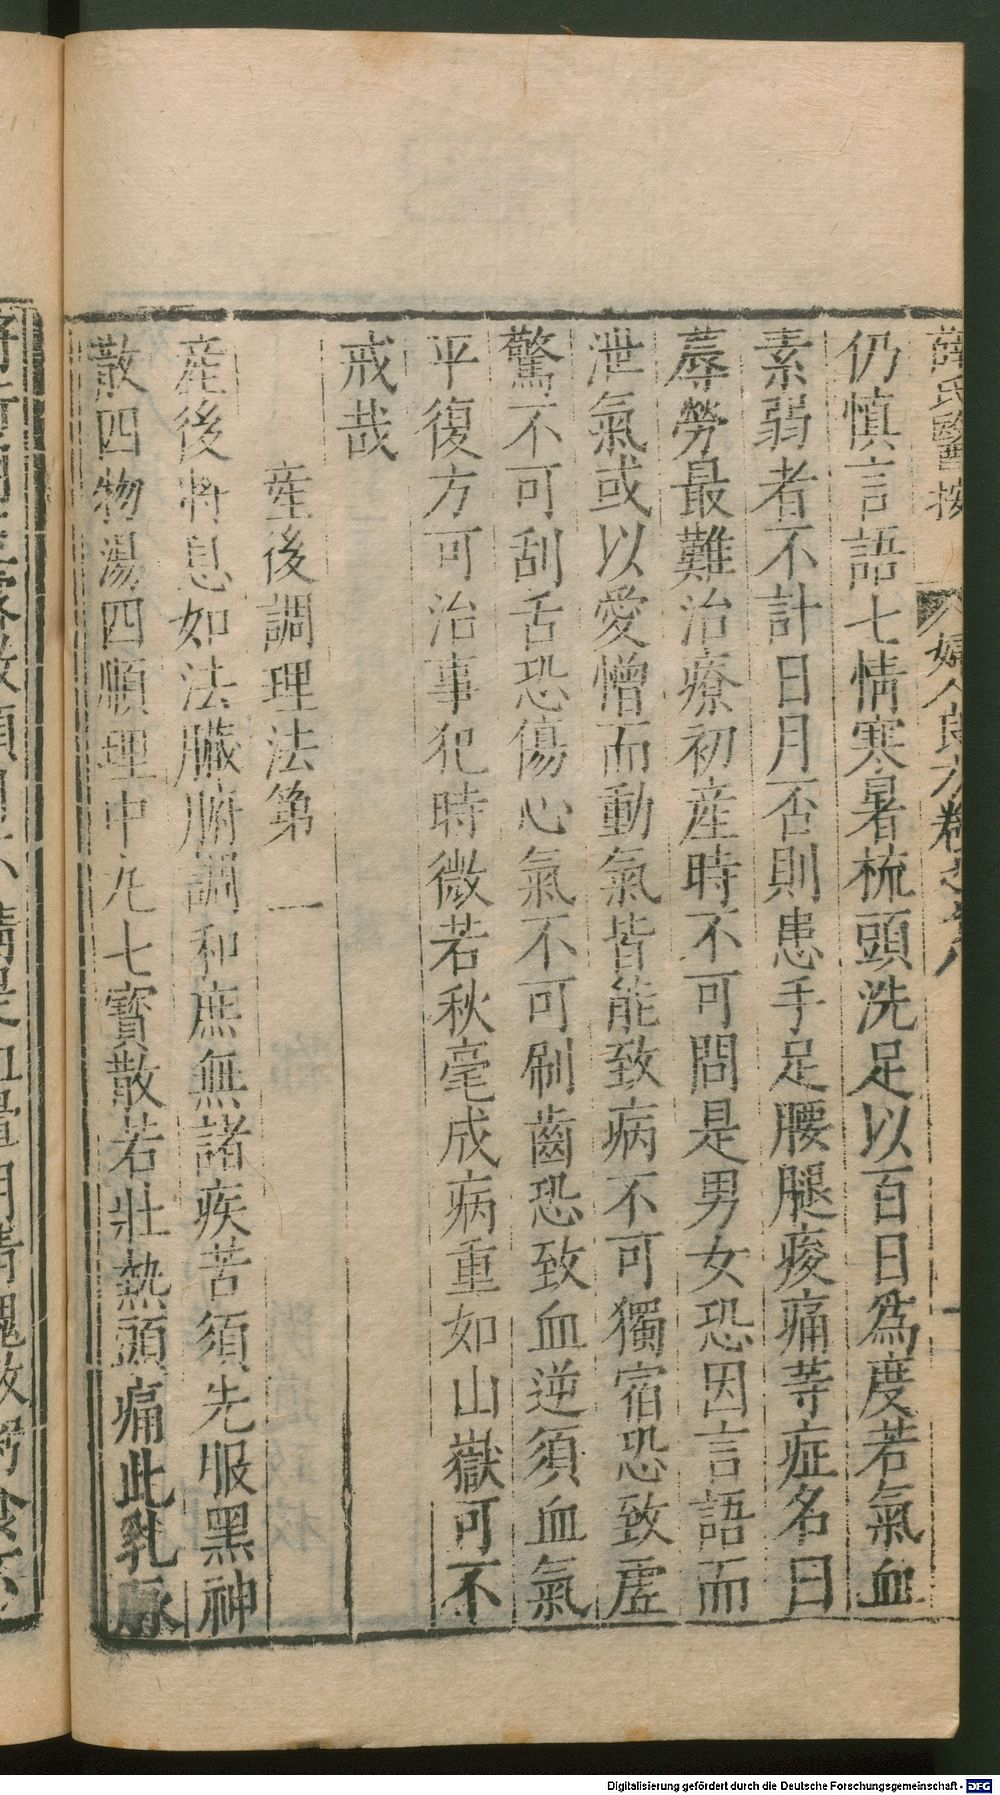 薛氏醫按
婦人良方卷之
仍慎言語七情寒暑梳頭洗足以百日爲度若氣血
素弱者不計日月否則患手足腰腿痠痛等症名曰
蓐勞最難治療初産時不可問是男女恐因言語而
泄氣或以愛憎而動氣皆能致病不可獨宿恐致虛
驚不可刮舌恐傷心氣不可刷齒恐致血逆須血氣
平復方可治事犯時微若秋毫成病重如山嶽可不
戒哉
産後調理法第一
産後將息如法臟腑調和庶無諸疾苦須先服黑神
散四物湯四順理中丸七寶散若壯熱頭痛此乳脉
Digitalisierung gefördert durch die Deutsche Forschungsgemeinschaft - DFG